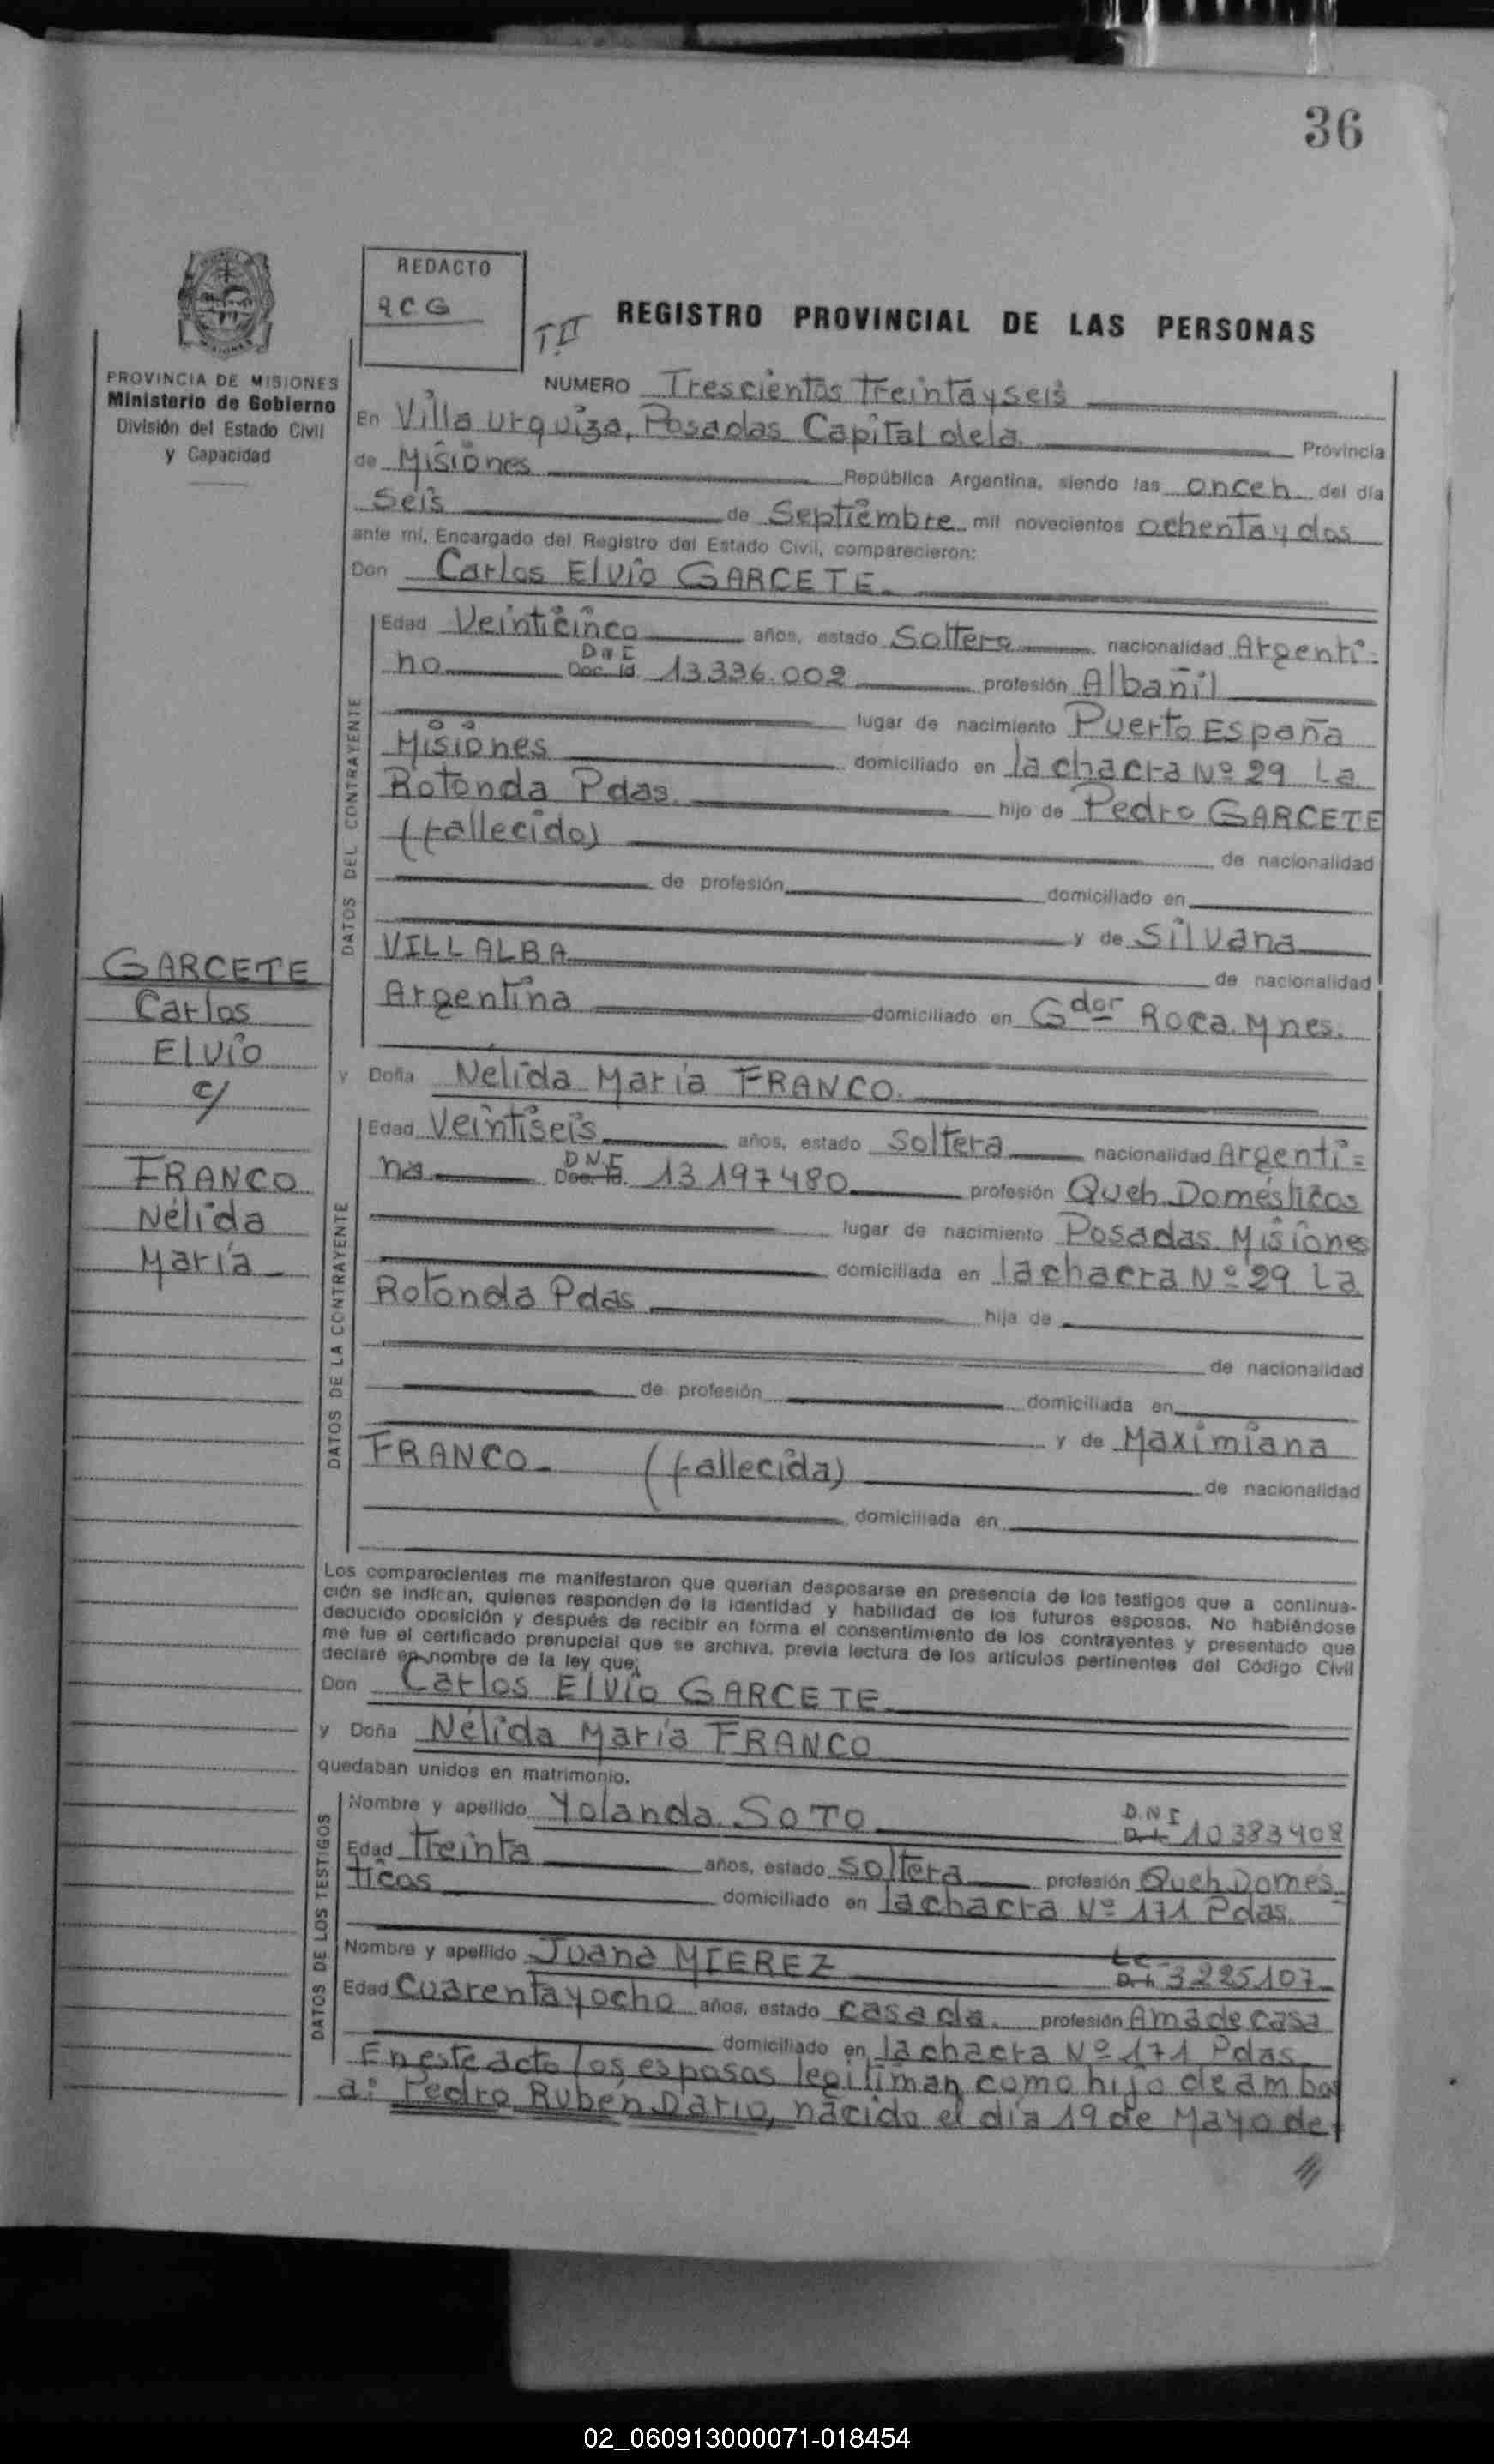 36
REDACTO
RCG
T.II
REGISTRO PROVINCIAL DE LAS PERSONAS
PROVINCIA DE MISIONES
Ministerio de Gobierno
División del Estado Civil
y Capacidad
NUMERO Trescientos Treinta y seis
En Villa Urquiza, Posadas Capital de la Provincia
de Misiones República Argentina, siendo las once h. del día
Seis de Septiembre mil novecientos ochenta y dos
ante mí, Encargado del Registro del Estado Civil, comparecieron:
Don Carlos Elvio GARCETE.
DATOS DEL CONTRAYENTE
Edad Veinticinco años, estado Soltero nacionalidad Argenti=
no DNI Doc. Id. 13.336.002 profesión Albañil
lugar de nacimiento Puerto España
Misiones domiciliado en la chacra Nº 29 La
Rotonda Pdas. hijo de Pedro GARCETE
(fallecido) de nacionalidad
de profesión domiciliado en
y de Silvana
VILLALBA de nacionalidad
Argentina domiciliado en Gdor Roca. Mnes.
GARCETE
Carlos
Elvio
c/
FRANCO
Nélida
María
y Doña Nélida María FRANCO.
DATOS DE LA CONTRAYENTE
Edad Veintiseis años, estado Soltera nacionalidad Argenti=
na D.N.I Doc. Id. 13.197480 profesión Queh. Domésticos
lugar de nacimiento Posadas Misiones
domiciliada en la chacra Nº 29 La
Rotonda Pdas hija de
de nacionalidad
de profesión domiciliada en
y de Maximiana
FRANCO (fallecida) de nacionalidad
domiciliada en
Los comparecientes me manifestaron que querían desposarse en presencia de los testigos que a continua-
ción se indican, quienes responden de la identidad y habilidad de los futuros esposos. No habiéndose
deducido oposición y después de recibir en forma el consentimiento de los contrayentes y presentado que
me fue el certificado prenupcial que se archiva, previa lectura de los artículos pertinentes del Código Civil
declaré en nombre de la ley que;
Don Carlos Elvio GARCETE
y Doña Nélida María FRANCO
quedaban unidos en matrimonio.
DATOS DE LOS TESTIGOS
Nombre y apellido Yolanda SOTO D.N.I 10383408
Edad Treinta años, estado soltera profesión Queh. Domés
ticos domiciliado en la chacra Nº 171 Pdas.
Nombre y apellido Juana MIEREZ LC 3225107
Edad Cuarenta y ocho años, estado casada. profesión Ama de casa
domiciliado en la chacra Nº 171 Pdas.
En este acto los esposos legitiman como hijo de ambos
a: Pedro Ruben Dario, nacido el día 19 de Mayo de
02_060913000071-018454